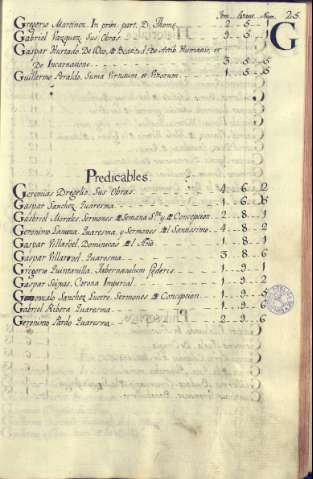 Tom. Estan. Num. 25
G
Gregorio Martinez. In prim. part. D. Thomę 2 5 1
Gabriel Vazquez. Sus Obras 9 5 5
Gaspar Hurtado. De Deo, & Beatitud. De Actib. Humanis, et
De Incarnatione 3 5 5
Guillermo Peraldo. Suma Virtutum et Vitiorum 1 5 5
Predicables.
Geremias Dregelio. Sus Obras 4 6 2
Gaspar Sanchez. Quaresma 1 6 6
Gabriel Morales. Sermones de Semana Sta. y de Concepcion 2 8 1
Geronimo Lanuza. Quaresma, y Sermones del Santissimo 4 8 2
Gaspar Villaroel. Dominicas de el Año 1 8 1
Gaspar Villaroel. Quaresma 3 8 6
Gregorio Quintanilla. Tabernaculum Fęderis 1 9 1
Gaspar Corona Imperial 1 9 2
Gonzalo Sanchez Lucero. Sermones de Concepcion 1 9 5
Gabriel Ribera. Quaresma 1 9 6
Geronimo Pardo. Quaresma 2 9 6